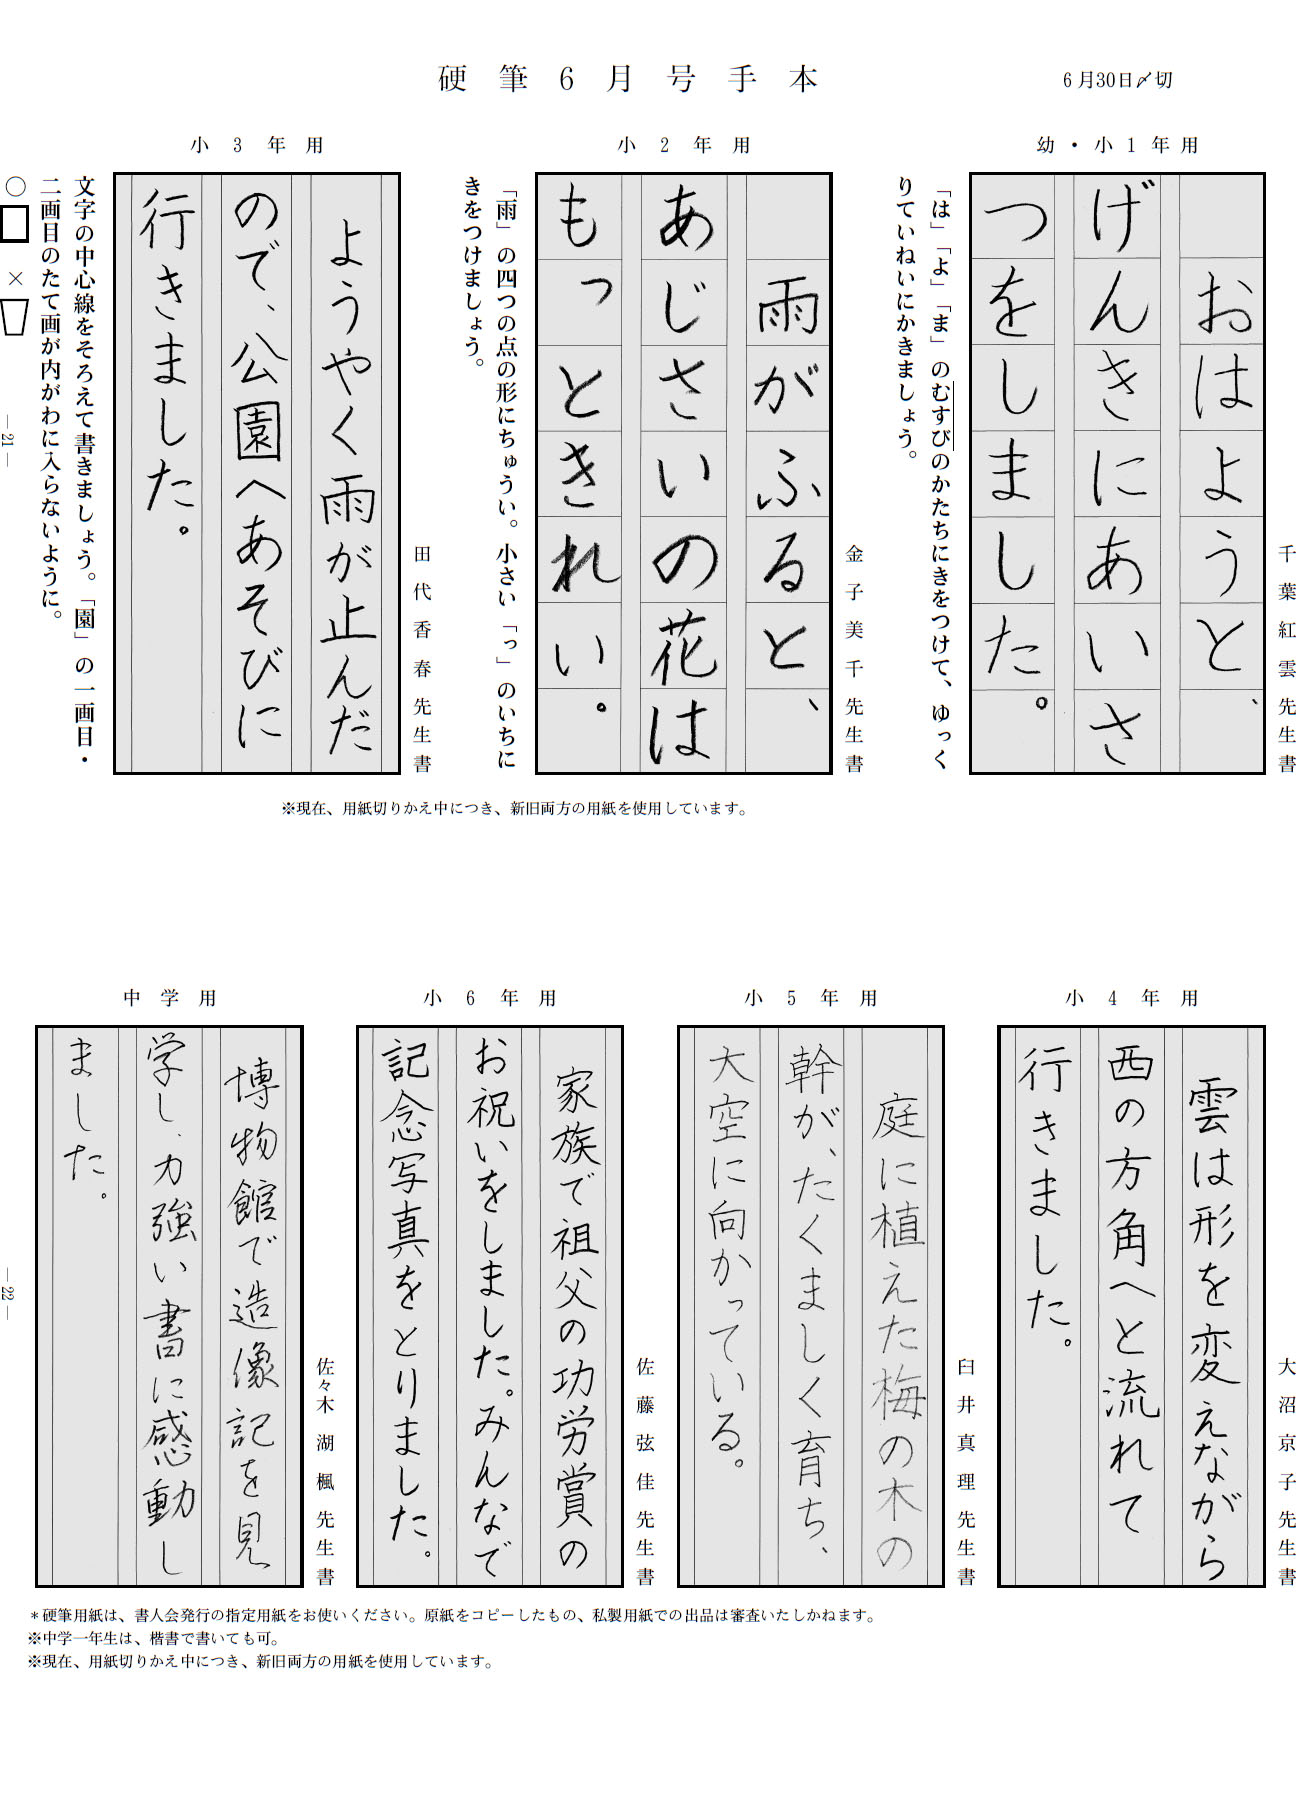 硬筆6月号手本
6月30日〆切
幼・小1年用
おはようと、
げんきにあいさ
つをしました。
千葉紅雲先生書
「は」「よ」「ま」のむすびのかたちにきをつけて、ゆっく
りていねいにかきましょう。
小2年用
雨がふると、
あじさいの花は
もっときれい。
金子美千先生書
「雨」の四つの点の形にちゅうい。小さい「っ」のいちに
きをつけましょう。
小3年用
ようやく雨が止んだ
ので、公園へあそびに
行きました。
田代香春先生書
文字の中心線をそろえて書きましょう。「園」の一画目・
二画目のたて画が内がわに入らないように。
○ ×
※現在、用紙切りかえ中につき、新旧両方の用紙を使用しています。
—21—
小4年用
雲は形を変えながら
西の方角へと流れて
行きました。
大沼京子先生書
小5年用
庭に植えた梅の木の
幹が、たくましく育ち、
大空に向かっている。
臼井真理先生書
小6年用
家族で祖父の功労賞の
お祝いをしました。みんなで
記念写真をとりました。
佐藤弦佳先生書
中学用
博物館で造像記を見
学し、力強い書に感動し
ました。
佐々木湖楓先生書
—22—
＊硬筆用紙は、書人会発行の指定用紙をお使いください。原紙をコピーしたもの、私製用紙での出品は審査いたしかねます。
※中学一年生は、楷書で書いても可。
※現在、用紙切りかえ中につき、新旧両方の用紙を使用しています。